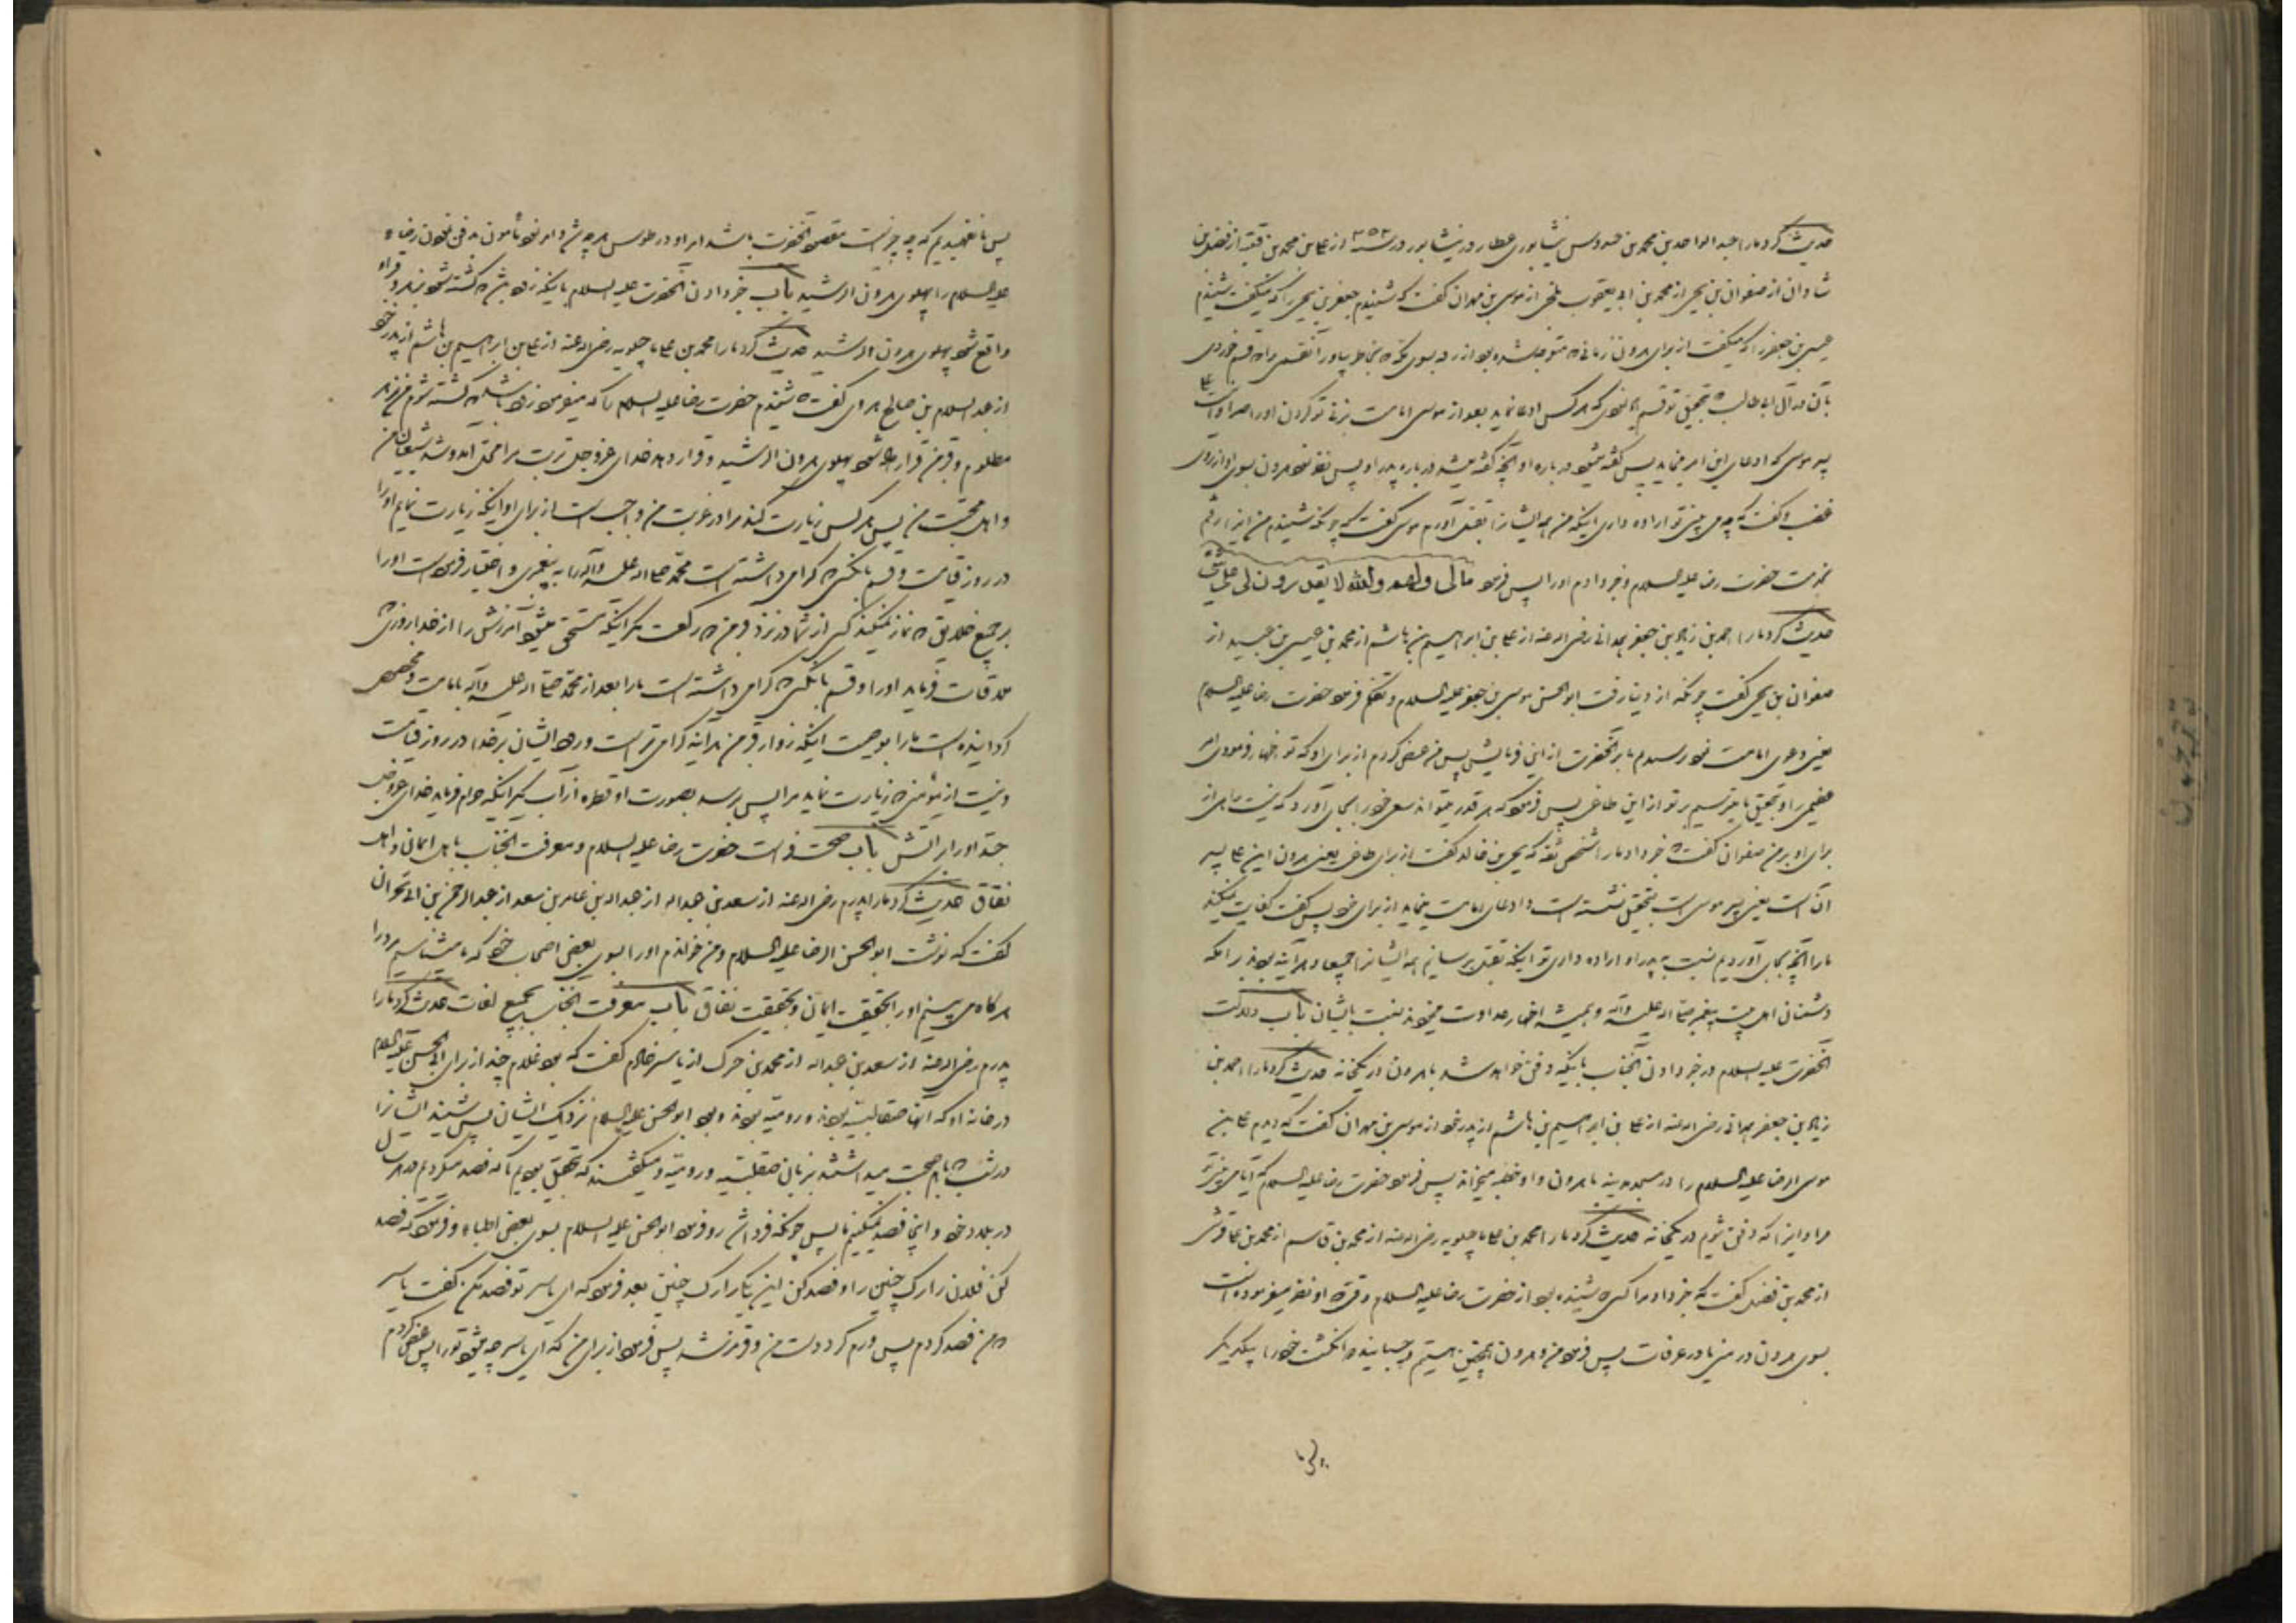 حدیث کرد ما را عبد الواحد بن محمد بن عبدوس نیشابوری عطار در نیشابور در سنه ۳۵۲ از علی بن محمد بن قتیبه از فضل بن
شاذان از صفوان بن یحیی از محمد بن ابی یعقوب بلخی از موسی بن مهران گفت که شنیدم جعفر بن یحیی را که میگفت شنیدم
عیسی بن جعفر را که میگفت از برای هرون زمانی که متوجه شده بود از رقه بسوی مکه که بخاطر بیاور آنقسمی را که قسم خوردی
بآن در آل ابی طالب که بتحقیق تو قسم خوردی که هر کس ادعا نماید بعد از موسی امامت بزنی تو گردن او را صبرا و این است علی
پسر موسی که ادعای این امر مینماید پس گفته میشود در باره او آنچه گفته میشد در باره پدر او پس نظر نمود هرون بسوی او از روی
غضب و گفت که چه می بینی تو اراده داری اینکه من همه ایشانرا بقتل آورم موسی گفت که چونکه شنیدم من اینرا رفتم
بخدمت حضرت رضا علیه السلام و خبر دادم او را پس فرمود مالی ولهم والله لا یقدرون لی علی شیئ
حدیث کرد ما را احمد بن زیاد بن جعفر همدانی رضی الله عنه از علی بن ابراهیم بن هاشم از محمد بن عیسی بن عبید از
صفوان بن یحیی گفت چونکه از دنیا رفت ابو الحسن موسی بن جعفر علیه السلام و تکلم فرمود حضرت رضا علیه السلام
یعنی دعوی امامت نمود ترسیدم ما بر آنحضرت از این فرمایش پس من عرض کردم از برای او که تو اظهار فرمودی امر
عظیمی را و بتحقیق ما میترسیم بر تو از این طاغی پس فرمود که هر قدر میتواند سعی خود را بجای آورد که نیست راهی از
برای او بر من صفوان گفت که خبر داد ما را شخص ثقه که یحیی بن خالد گفت از برای طاغی یعنی هرون این علی پسر
آن است یعنی پسر موسی است بتحقیق نشسته است و ادعای امامت مینماید از برای خود پس گفت کفایت نمیکند
ما را آنچه بجای آوردیم نسبت به پدر او اراده داری تو اینکه بقتل برسانیم همه ایشانرا جمیعا و هر آینه بودند برامکه
دشمنان اهل بیت پیغمبر صلی الله علیه وآله و همیشه اظهار عداوت مینمودند نسبت بایشان باب دلالت
آنحضرت علیه السلام در خبر دادن آنجناب باینکه دفن خواهد شد با هرون در یکخانه حدیث کرد ما را احمد بن
زیاد بن جعفر همدانی رضی الله عنه از علی بن ابراهیم بن هاشم از پدر خود از موسی بن مهران گفت که دیدم علی بن
موسی الرضا علیه السلام را در مسجد مدینه با هرون و او خطبه میخواند پس فرمود حضرت رضا علیه السلام که آیا می بینی تو
مرا و اینرا که دفن شویم در یکخانه حدیث کرد ما را محمد بن علی ماجیلویه رضی الله عنه از محمد بن قاسم از محمد بن علی قرشی
از محمد بن فضیل گفت که خبر داد مرا کسی که شنیده بود از حضرت رضا علیه السلام وقتی که او نظر میفرموده است
بسوی هرون در منی یا در عرفات پس فرمود من و هرون همچنین هستیم و چسبانید دو انگشت خود را بیکدیگر
پس ما نفهمیدیم که چه چیز است مقصود آنحضرت باشد امر او در طوس هر چه شد و امر نمود مأمون بدفن نمودن رضا
علیه السلام را پهلوی هرون الرشید باب خبر دادن آنحضرت علیه السلام باینکه زود باشد که کشته شود بزهر و قبر او
واقع شود پهلوی هرون الرشید حدیث کرد ما را محمد بن علی ماجیلویه رضی الله عنه از علی بن ابراهیم بن هاشم از پدر خود
از عبد السلام بن صالح هروی گفت که شنیدم حضرت رضا علیه السلام را که میفرمود زود باشد که کشته شوم من بزهر
مظلوم و قبر من قرار داده شود پهلوی هرون الرشید و قرار دهد خدای عزوجل تربت مرا محل آمد و شد شیعیان من
و اهل محبت من پس هر کس زیارت کند مرا در غربت من واجب است از برای او اینکه زیارت نمایم او را
در روز قیامت و قسم بآنکسی که گرامی داشته است محمد صلی الله علیه وآله را به پیغمبری و اختیار فرموده است او را
بر جمیع خلایق که نماز نمیکند کسی از شما در نزد قبر من دو رکعت مگر اینکه مستحق میشود آمرزش را از خدا روزی که
ملاقات فرماید او را و قسم بآنکسی که گرامی داشته است ما را بعد از محمد صلی الله علیه وآله بامامت و مخصوص
گردانیده است ما را بوصیت اینکه زوار قبر من هر آینه گرامی تر است ورود ایشان بر خدا در روز قیامت
و نیست از مؤمنی که زیارت نماید مرا پس برسد بصورت او قطره از آب مگر اینکه حرام فرماید خدای عزوجل
جسد او را بر آتش باب صحت فراست حضرت رضا علیه السلام و معرفت آنجناب باهل ایمان و اهل
نفاق حدیث کرد ما را پدرم رضی الله عنه از سعد بن عبد الله از عبد الله بن عامر بن سعد از عبد الرحمن بن ابی نجران
گفت که نوشت ابو الحسن الرضا علیه السلام و من خواندم او را بسوی بعضی اصحاب خود که ما میشناسیم مرد را
هر گاه می بینیم او را بحقیقت ایمان و بحقیقت نفاق باب معرفت آنجناب بجمیع لغات حدیث کرد ما را
پدرم رضی الله عنه از سعد بن عبد الله از محمد بن جزک از یاسر خادم گفت که بود غلام چند از برای ابی الحسن علیه السلام
در خانه او که آنها صقالبیه بودند و رومیه بودند و بود ابو الحسن علیه السلام نزدیک ایشان پس شنید ایشانرا
در شب که با هم صحبت میداشتند بزبان صقلبیه و رومیه و میگفتند که بتحقیق بودیم ما که فصد میکردیم در هر سال
در بلاد خود و اینجا فصد نمیکنیم ما پس چونکه فردا شد رو فرمود ابو الحسن علیه السلام بسوی بعضی اطباء و فرمود که فصد
کن فلان را رگ چنین را و فصد کن این یکی را رگ چنین بعد فرمود که ای یاسر تو فصد مکن گفت یاسر
که من فصد کردم پس ورم کرد دست من و قرمز شد پس فرمود از برای من که ای یاسر چه میشود تو را پس عرض کردم